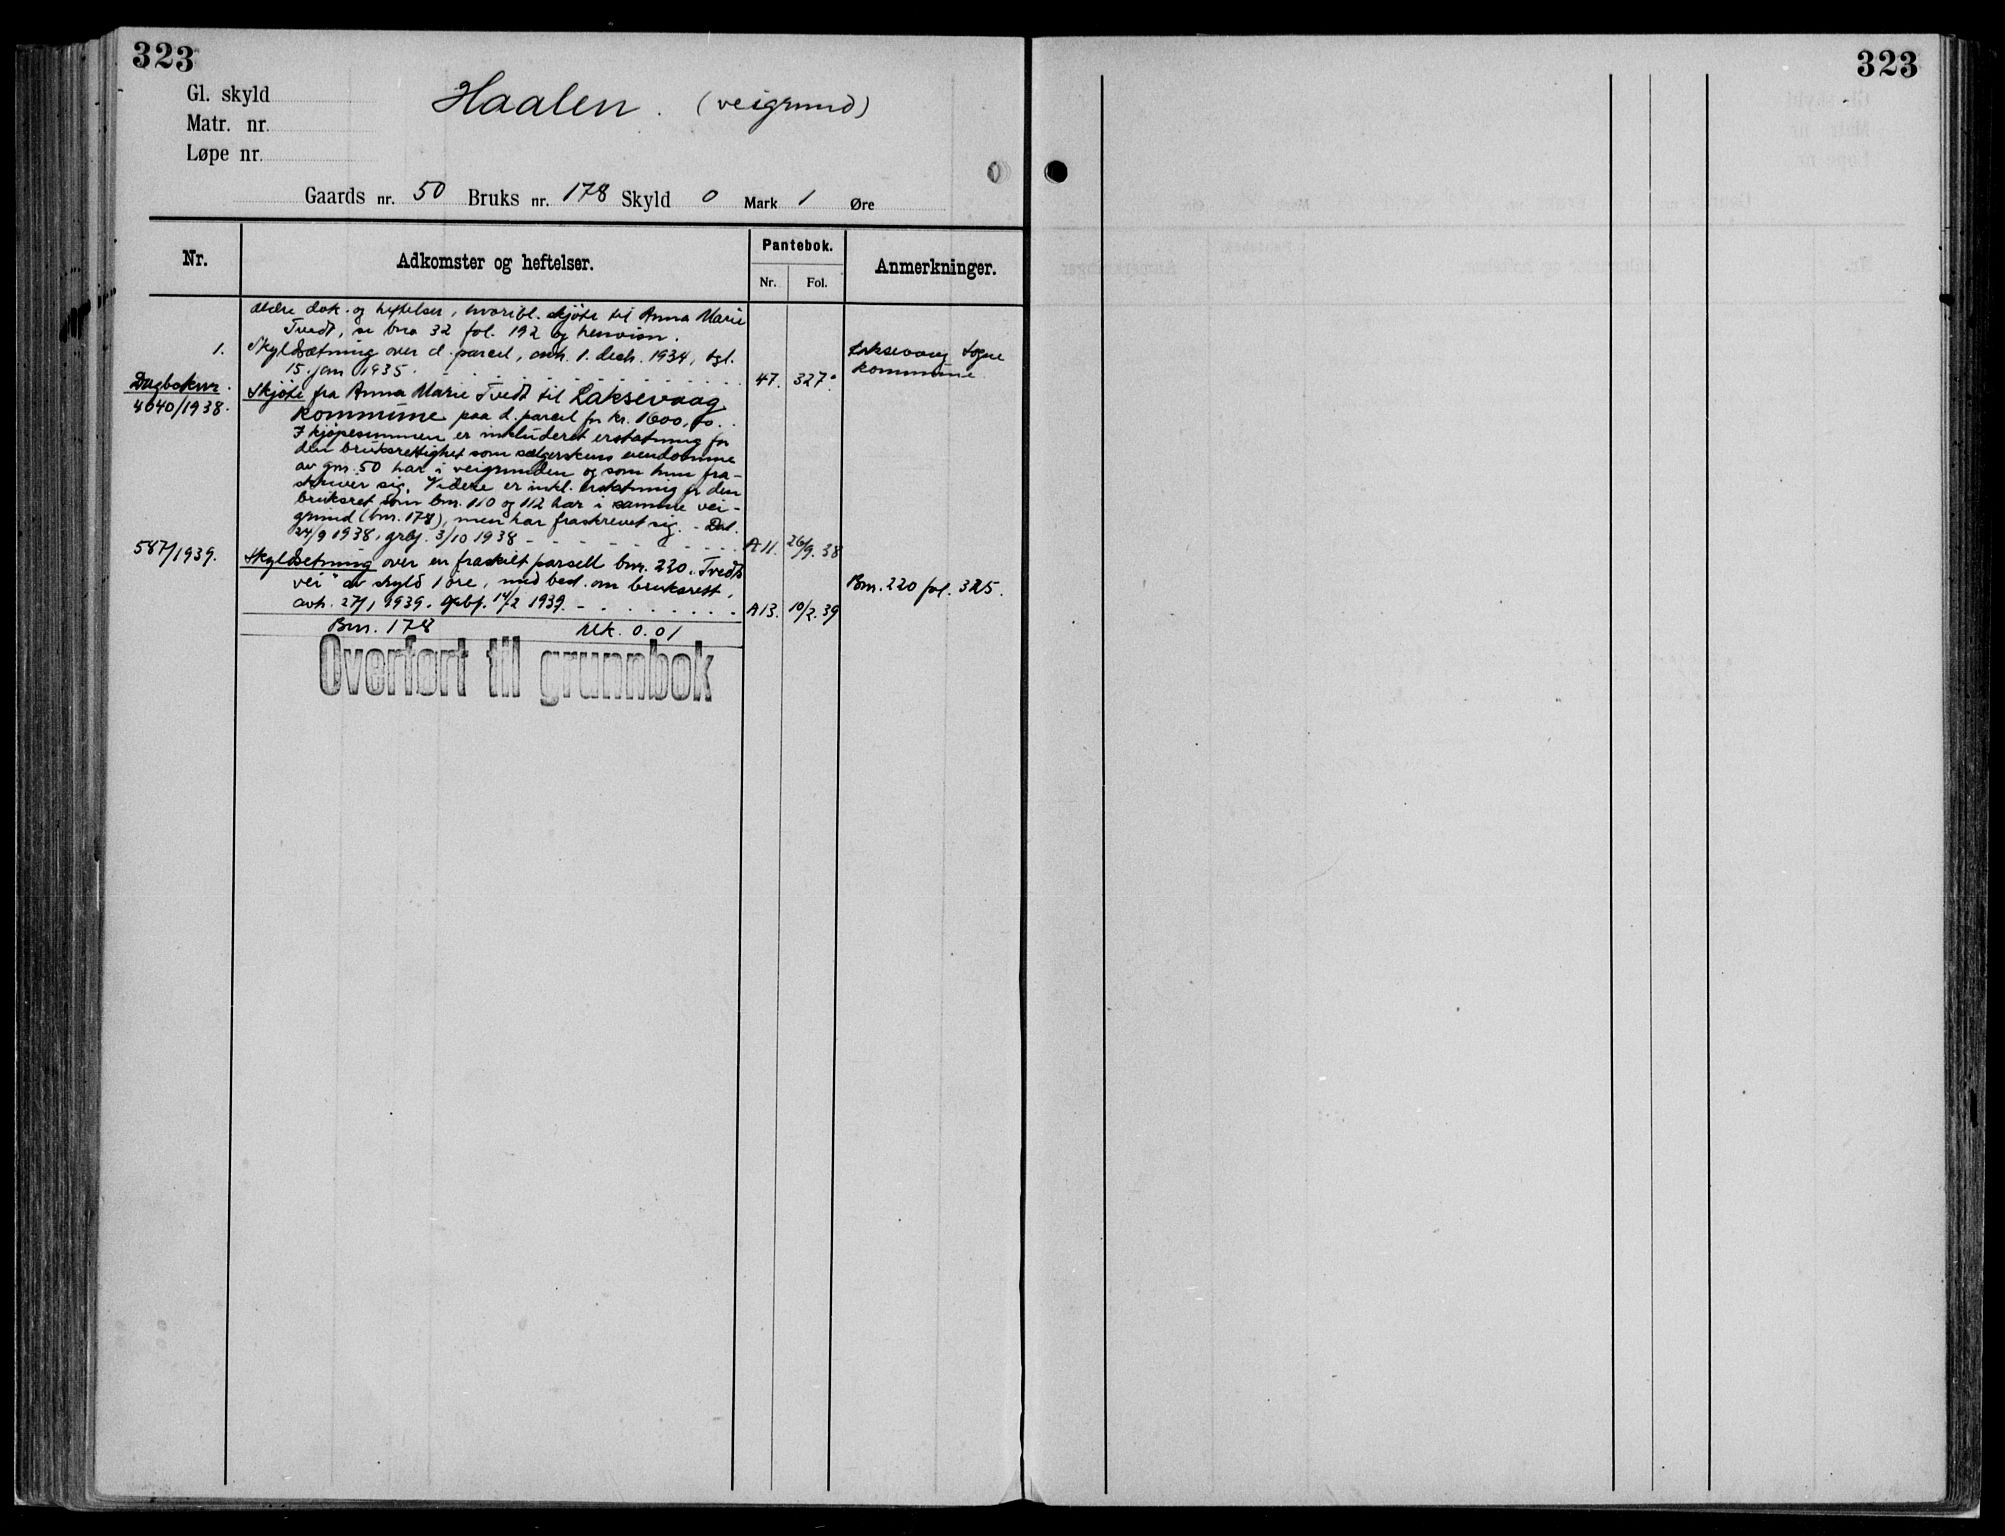 323
323
Gl. skyld
Matr. nr.
Løpe nr.
Haalen. (veigrund)
Gaards nr. 50 Bruks nr. 178 Skyld 0 Mark 1 Øre
Nr.
Adkomster og heftelser.
Pantebok.
Nr. Fol.
Anmerkninger.
Ældre dok. og heftelser, hvoribl. skjøte til Anna Marie
Tvedt, se bno 32 fol. 192 og henvisn.
1. Skyldsætning over d. parcel, avh. 1. decb. 1934, tgl.
15. jan 1935. 47. 327
Laksevaag sogne
kommune
Dagboknr.
4640/1938. Skjøte fra Anna Marie Tvedt til Laksevaag
kommune paa d. parcel for kr. 1600,00.
I kjøpesummen er inkluderet erstatning for
den bruksrettighet som sælgerskens eiendomme
av gnr. 50 har i veigrunden og som hun fra-
skriver sig. Videre er inkl. erstatning for den
bruksret som bnr. 110 og 112 har i samme vei-
grund (bnr. 178), men har fraskrevet sig. - Dat.
24/9 1938, grbf. 3/10 1938 A 11. 26/9. 38
587/1939. Skyldsetning over en fraskilt parsell bnr. 220 "Tvedts
vei" av skyld 1 øre, med best. om bruksrett,
avh. 27/1 1939. Grbf. 14/2 1939. A 13. 10/2. 39
Bnr. 220 fol. 325.
Bnr. 178 Mk. 0.01
Overført til grunnbok